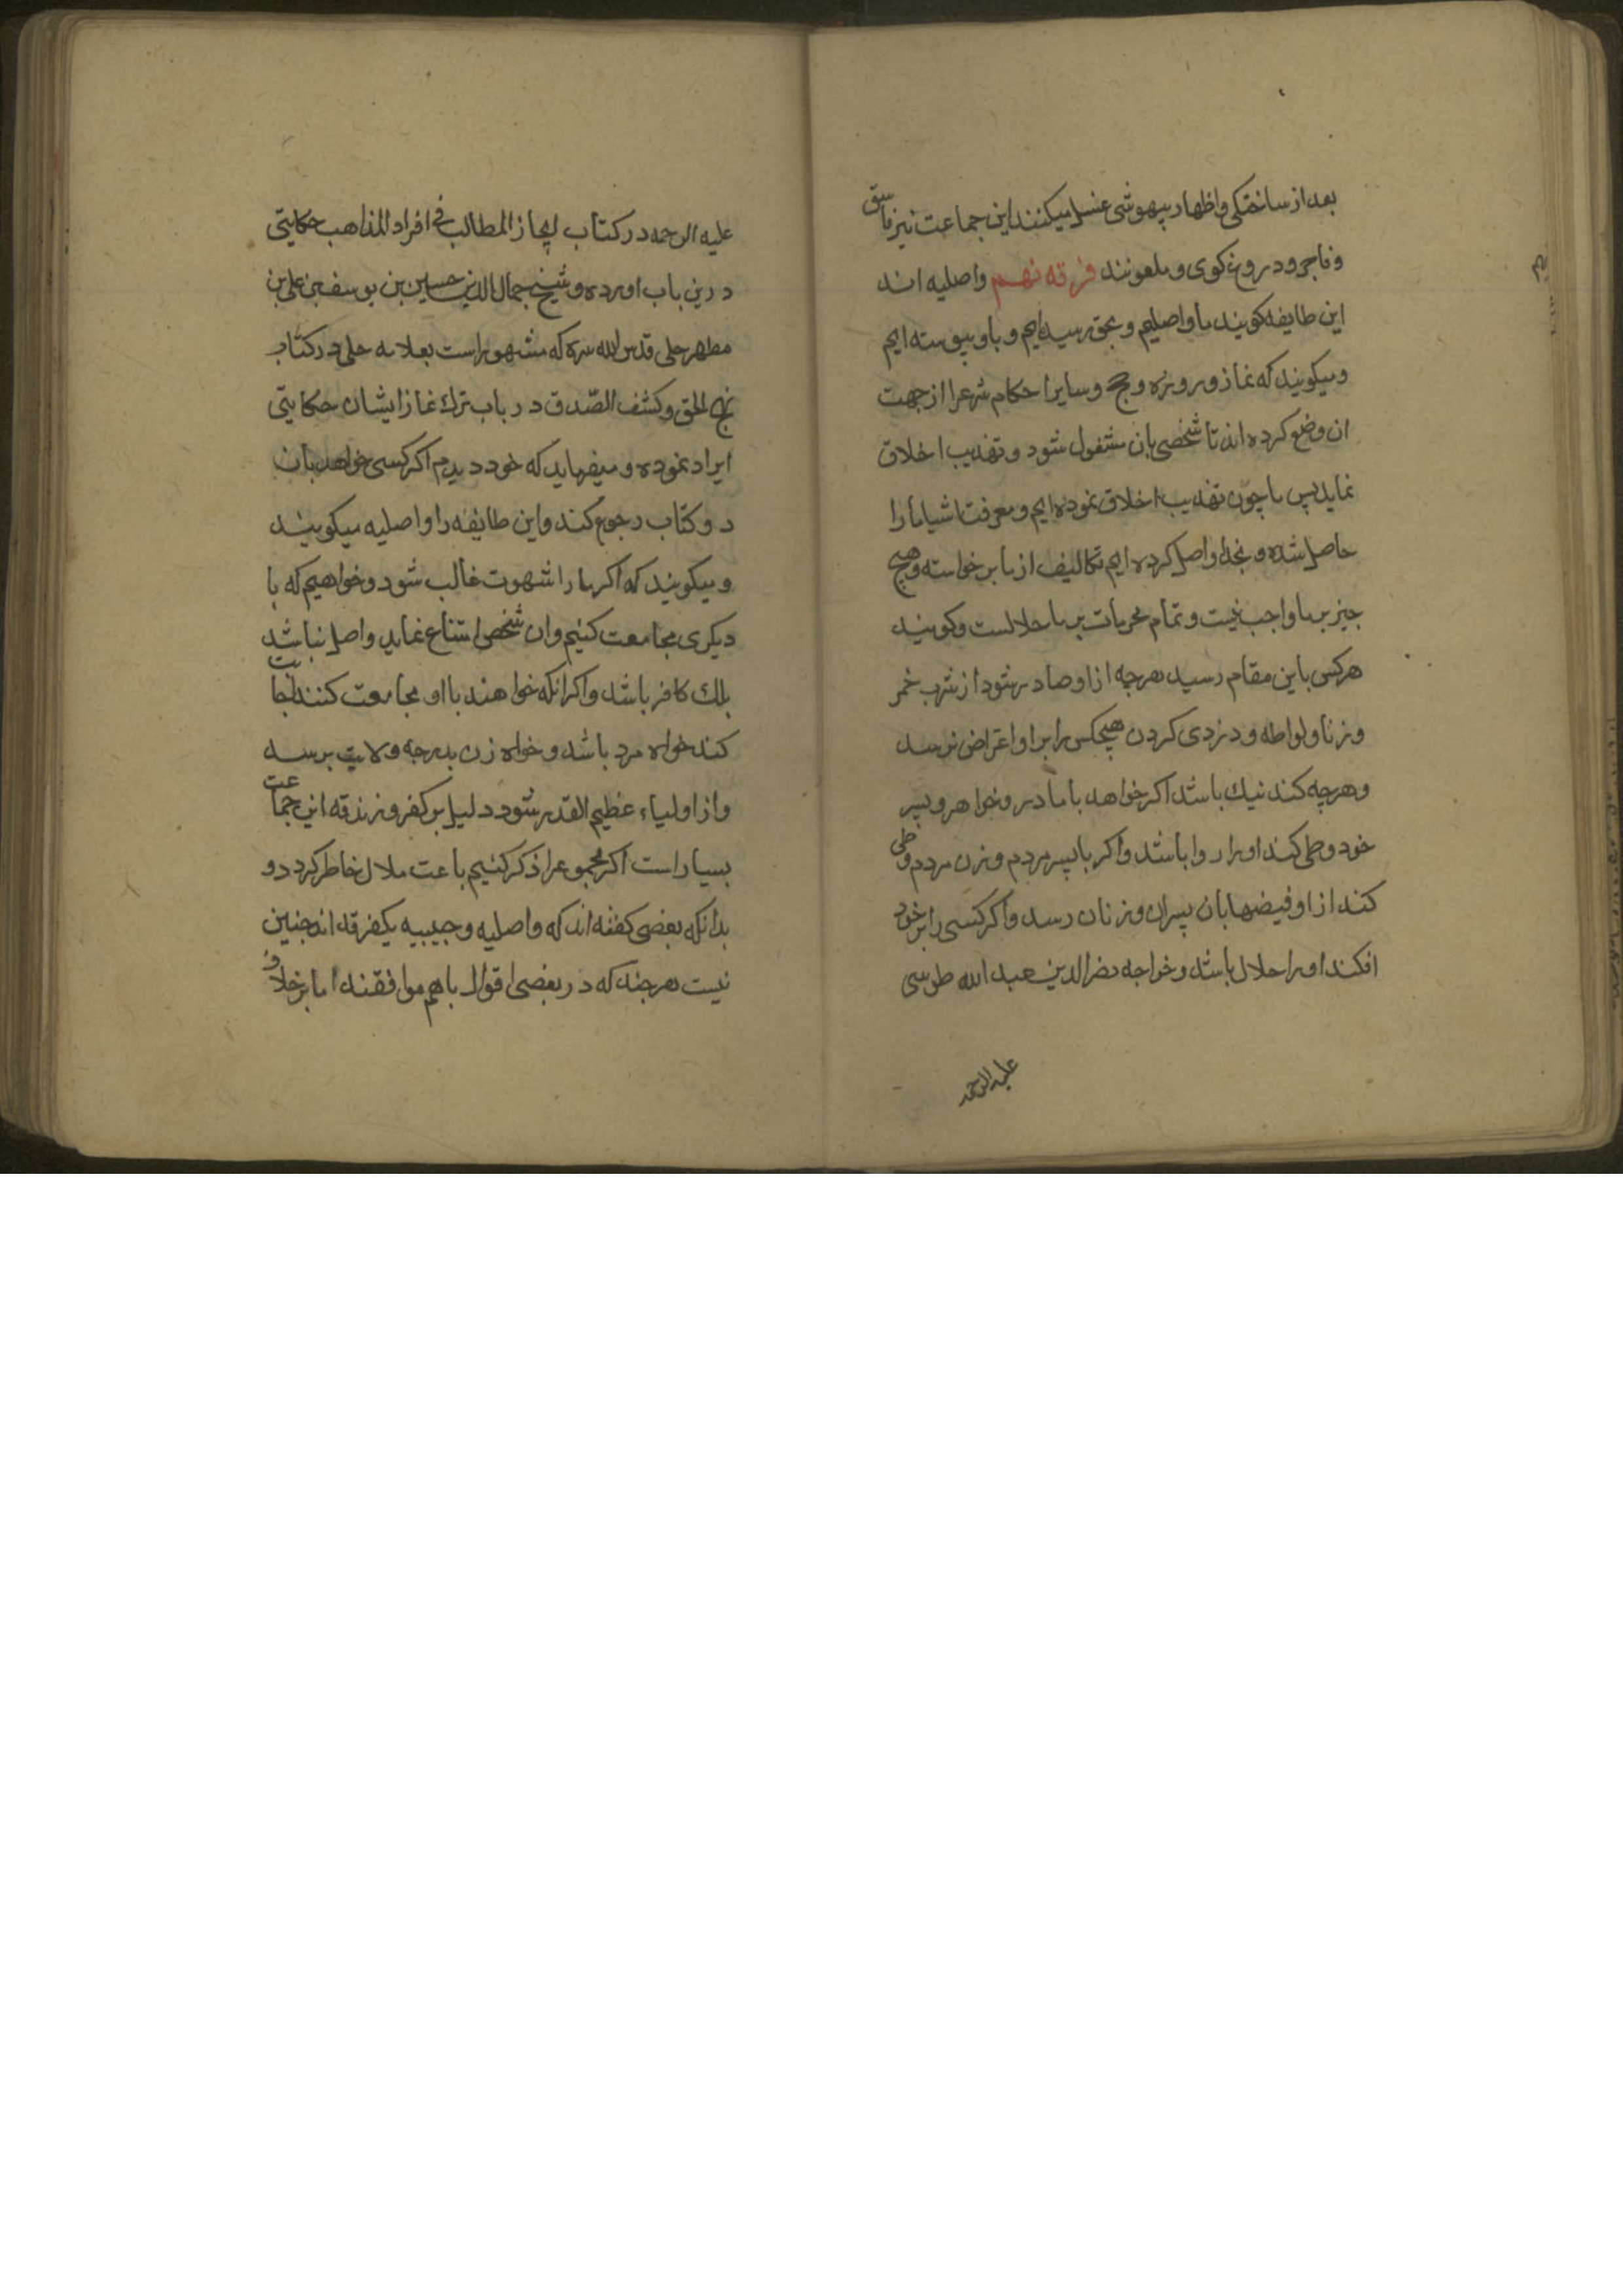 بعد از ساختکی و اظهار بیهوشی غسل میکنند این جماعت نیز فاسق
و فاجر و دروغ کوی و ملعونند فرقه نهم واصلیه اند
این طایفه کویند ما واصلیم و بحق رسیده ایم و باو پیوسته ایم
و میکویند که نماز و روزه و حج و سایر احکام شرعرا از جهت
ان وضع کرده اند تا شخصی بان مشغول شود و تهذیب اخلاق
نماید پس ما چون تهذیب اخلاق نموده ایم و معرفت اشیا ما را
حاصل شده و بخدا واصل کرده ایم تکالیف از ما برخواسته و هیچ
چیز بر ما واجب نیست و تمام محرمات بر ما حلالست و کویند
هر کس باین مقام رسید هرچه از او صادر شود از شرب خمر
و زنا و لواطه و دزدی کردن هیچکس را بر او اعتراض نرسد
و هرچه کند نیک باشد اکر خواهد با مادر و خواهر و پسر
خود وطی کند او را روا باشد و اکر با پسر مردم و زن مردم وطی
کند از او فیضها بان پسران و زنان رسد و اکر کسی را بر خود
افکند او را حلال باشد و خواجه نصرالدین عبد الله طوسی
علیه الرحمه
علیه الرحمه در کتاب ایجاز المطالب فی افراد المذاهب حکایتی
درین باب اورده و شیخ جمال الدین حسین بن یوسف بن علی بن
مطهر حلی قدس الله سره که مشهور است بعلامه حلی در کتاب
نهج الحق و کشف الصّدق در باب ترک نماز ایشان حکایتی
ایراد نموده و میفرماید که خود دیدم اکر کسی خواهد بان
دو کتاب رجوع کند و این طایفه را واصلیه میکویند
و میکویند که اکر ما را شهوت غالب شود و خواهیم که با
دیکری مجامعت کنیم و ان شخص امتناع نماید واصل نباشد
بلک کافر باشد و اکر انکه خواهند با او مجامعت کنند اجابت
کند خواه مرد باشد و خواه زن بدرجه ولایت برسد
و از اولیاء عظیم القدر شود دلیل بر کفر و زندقه این جماعت
بسیار است اکر مجموعرا ذکر کنیم باعث ملال خاطر کردد و
بدانکه بعضی کفته اند که واصلیه و حبیبیه یکفرقه اند چنین
نیست هرچند که در بعضی اقوال با هم موافقند اما بر خلاف